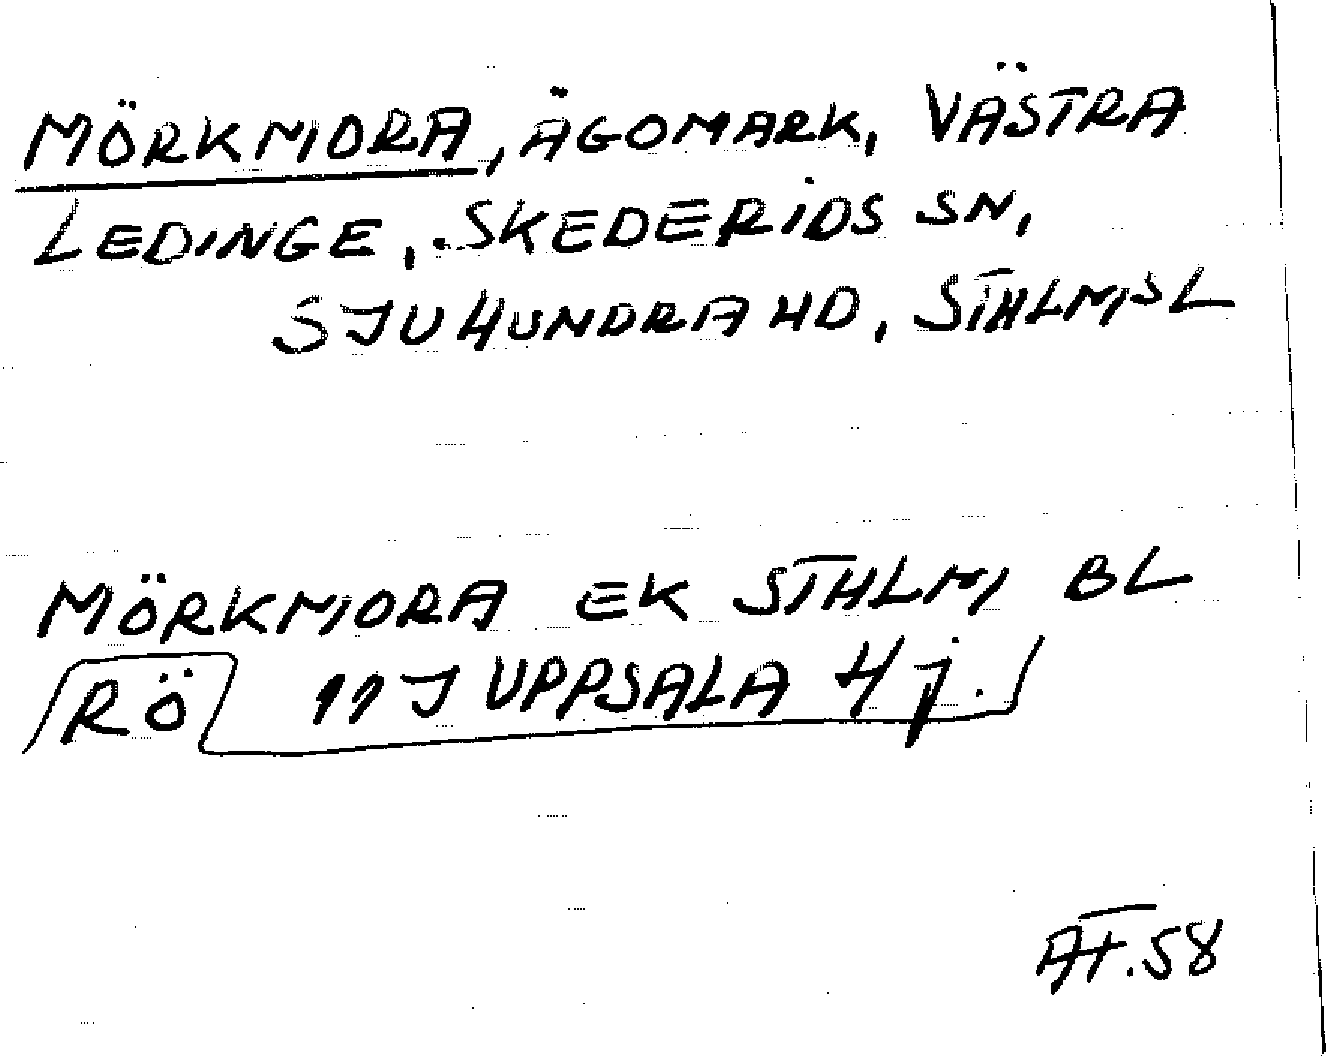 MÖRKMORA, ÄGOMARK, VÄSTRA
LEDINGE, SKEDERIDS SN,
SJUHUNDRA HD, STHLMSL
MÖRKMORA EK STHLM BL
RÖ 11 J UPPSALA 4 j.
AT.58